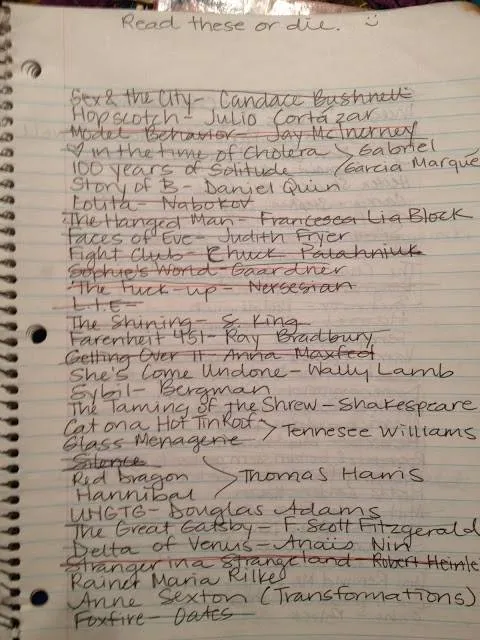 Read these or die. :)
Sex & the City - Candace Bushnell
Hopscotch - Julio Cortázar
Model Behavior - Jay McInerney
♡ in the time of Cholera > Gabriel
100 years of Solitude > Garcia Marque
Story of B - Daniel Quin
Lolita - Nabokov
The Hanged Man - Francesca Lia Block
Faces of Eve - Judith Fryer
Fight Club - Chuck Palahniuk
Sophie's World - Gaardner
The Fuck-up - Nersesian
L.I.E -
The Shining - S. King
Farenheit 451 - Ray Bradbury
Getting Over It - Anna Maxfed
She's Come Undone - Wally Lamb
Sybil - Bergman
The Taming of the Shrew - Shakespeare
Cat on a Hot Tin Roof > Tennesee Williams
Glass Menagerie
Silence
Red Dragon > Thomas Harris
Hannibal
UHGTG - Douglas Adams
The Great Gatsby - F. Scott Fitzgerald
Delta of Venus - Anaïs Nin
Stranger in a strange land - Robert Heinle
Rainer Maria Rilke
Anne Sexton (Transformations)
Foxfire - Oates